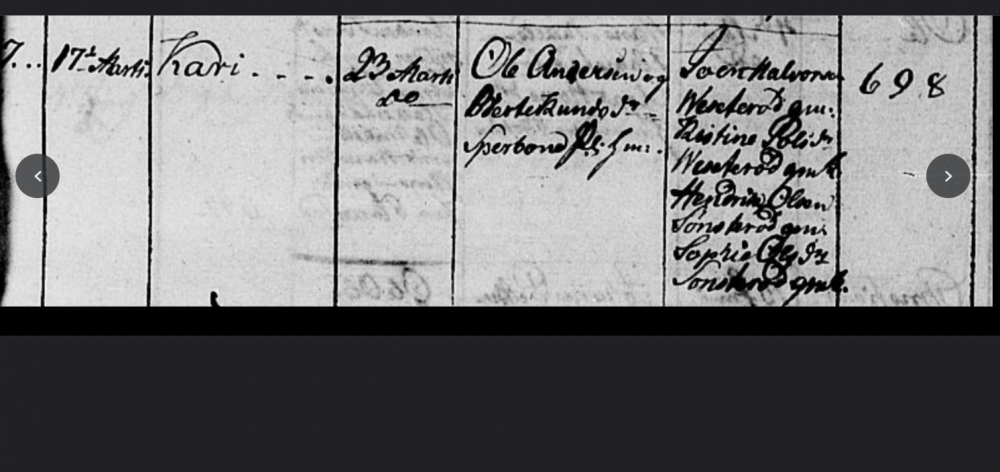 7...
17de Marti:
Kari . . . . .
23 Marti
do
Ole Andersen og
Berte Knuds Dr
Sperbond
Soren Halvorsen
Weseterød gm:
Kistine Pols Dr
Weseterød gmk
Hendrik Olsen
Sonsterød gm:
Sophie Ols Dr
Sonsterød gmk.
698